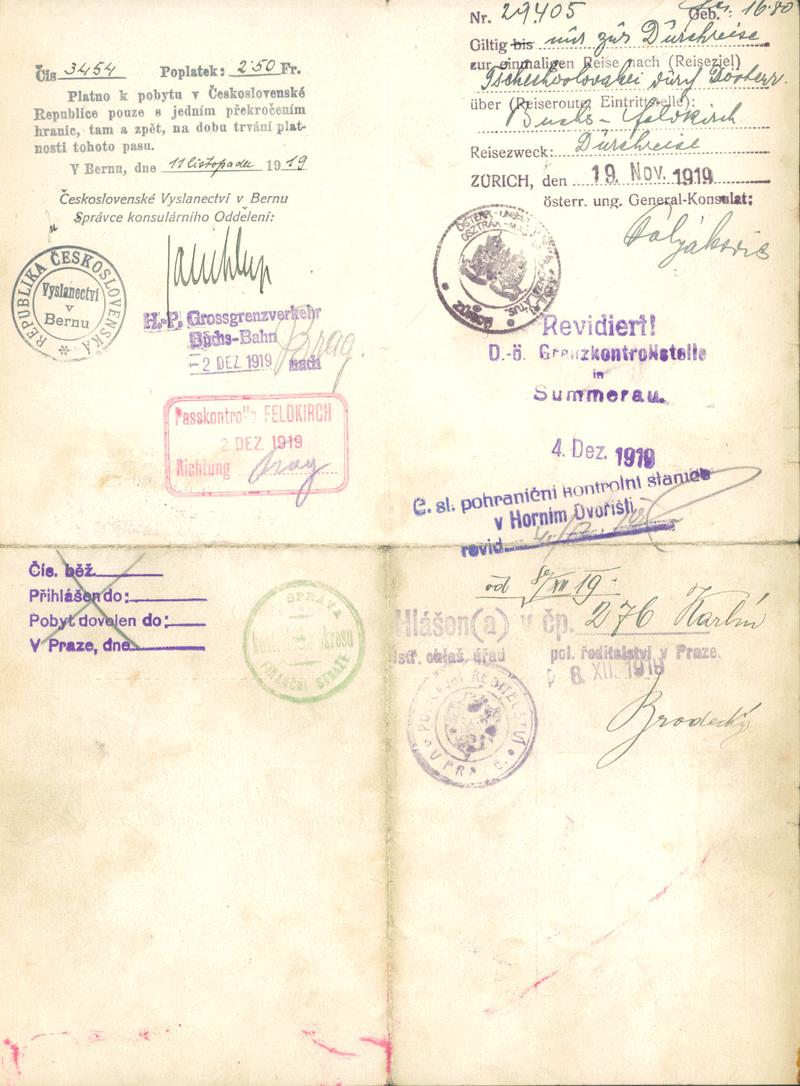 Čís 3454 Poplatek: 2·50 Fr.
Platno k pobytu v Československé
Republice pouze s jedním překročením
hranic, tam a zpět, na dobu trvání plat-
nosti tohoto pasu.
V Bernu, dne 11 listopadu 1919
Československé Vyslanectví v Bernu
Správce konsulárního Oddělení:
REPUBLIKA ČESKOSLOVENSKÁ
Vyslanectví
v
Bernu
H.-P. Grossgrenzverkehr
Buchs-Bahn
- 2 DEZ 1919 nach Prag.
Passkontrolle FELDKIRCH
2 DEZ. 1919
Richtung Prag
Nr. 29405 Geb. 16·80
Giltig bis nur zur Durchreise
zur einmaligen Reise nach (Reiseziel)
über (Reiseroute Eintrittstelle):
Buchs - Feldkirch
Reisezweck: Durchreise
ZÜRICH, den 19. Nov. 1919
österr. ung. General-Konsulat:
Revidiert!
D.-ö. Grenzkontrollstelle
in
Summerau.
4. Dez. 1919
Č. sl. pohraniční kontrolní stanice
v Horním Dvořišti
revid.
Čís. běž.
Přihlášen do:
Pobyt dovolen do:
V Praze, dne
SPRÁVA
FINANČNÍ
od 8/XII 19·
Hlášen(a) v čp. 276 Karlín
ústř. ohlaš. úřad pol. ředitelství v Praze.
8. XII. 1919
POLICEJNÍ ŘEDITELSTVÍ
V PRAZE
Brodecký